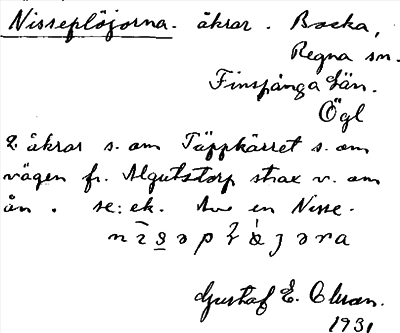 Nisseplöjorna. åkrar. Backa,
Regna sn.
Finspånga län.
Ögl
2 åkrar s. om Täppkärret s. om
vägen fr. Algutstorp strax v. om
ån. se: ek. Av en Nisse.
Gustaf E. Olsson.
1931